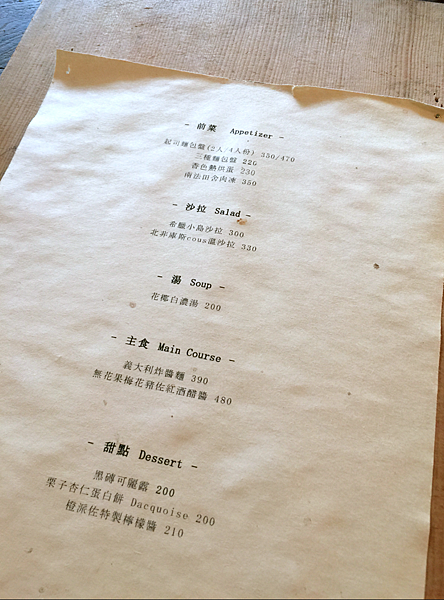 - 前菜 Appetizer -
起司麵包盤(2人/4人份) 350/470
三種麵包盤 220
香色熱烘蛋 230
南法田舍肉凍 350
- 沙拉 Salad -
希臘小島沙拉 300
北非庫斯cous溫沙拉 330
- 湯 Soup -
花椰白濃湯 200
- 主食 Main Course -
義大利炸醬麵 390
無花果梅花豬佐紅酒醋醬 480
- 甜點 Dessert -
黑磚可麗露 200
栗子杏仁蛋白餅 Dacquoise 200
橙派佐特製檸檬醬 210